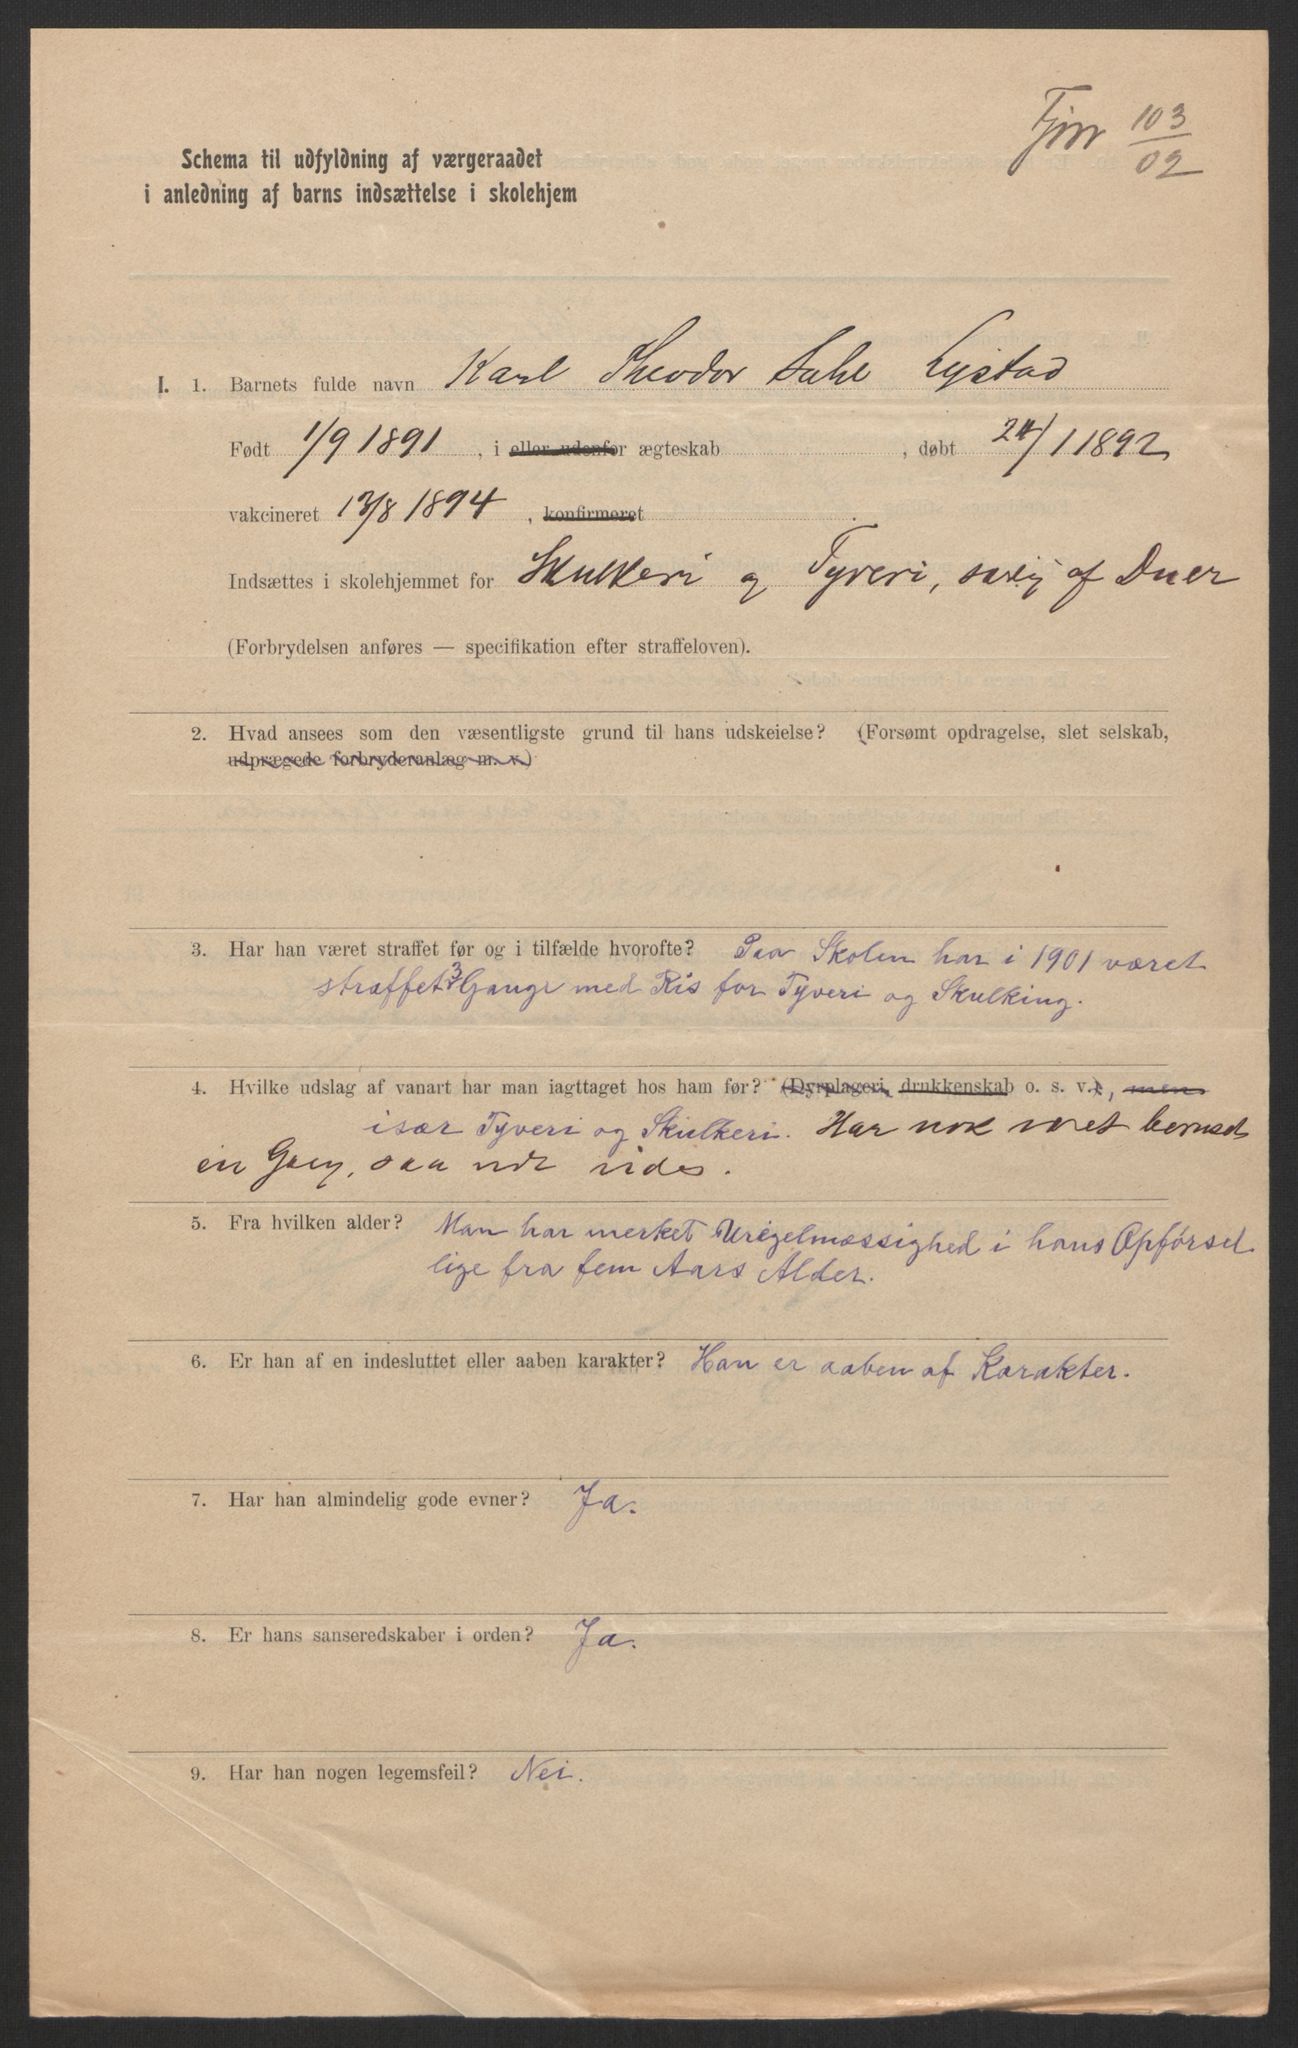 103
02
Schema til udfyldning af værgeraadet
i anledning af barns indsættelse i skolehjem
I. 1. Barnets fulde navn Karl Theodor Dahl Lystad
Født 1/9 1891, i eller udenfor ægteskab , døbt 24/1 1892
vakcineret 13/8 1894, konfirmeret .
Indsættes i skolehjemmet for Skulkeri og Tyveri, særlig af Duer
(Forbrydelsen anføres — specifikation efter straffeloven).
2. Hvad ansees som den væsentligste grund til hans udskeielse? (Forsømt opdragelse, slet selskab,
udprægede forbryderanlæg m. v.)
3. Har han været straffet før og i tilfælde hvorofte? Paa Skolen har i 1901 været
straffet 3 Gange med Ris for Tyveri og Skulking.
4. Hvilke udslag af vanart har man iagttaget hos ham før? (Dyrplageri, drukkenskab o. s. v.), men
især Tyveri og Skulkeri. Har nok været beruset
en Gang, saa vidt vides.
5. Fra hvilken alder? Man har merket Uregelmæssighed i hans Opførsel
lige fra fem Aars Alder.
6. Er han af en indesluttet eller aaben karakter? Han er aaben af Karakter.
7. Har han almindelig gode evner? Ja.
8. Er hans sanseredskaber i orden? Ja.
9. Har han nogen legemsfeil? Nei.